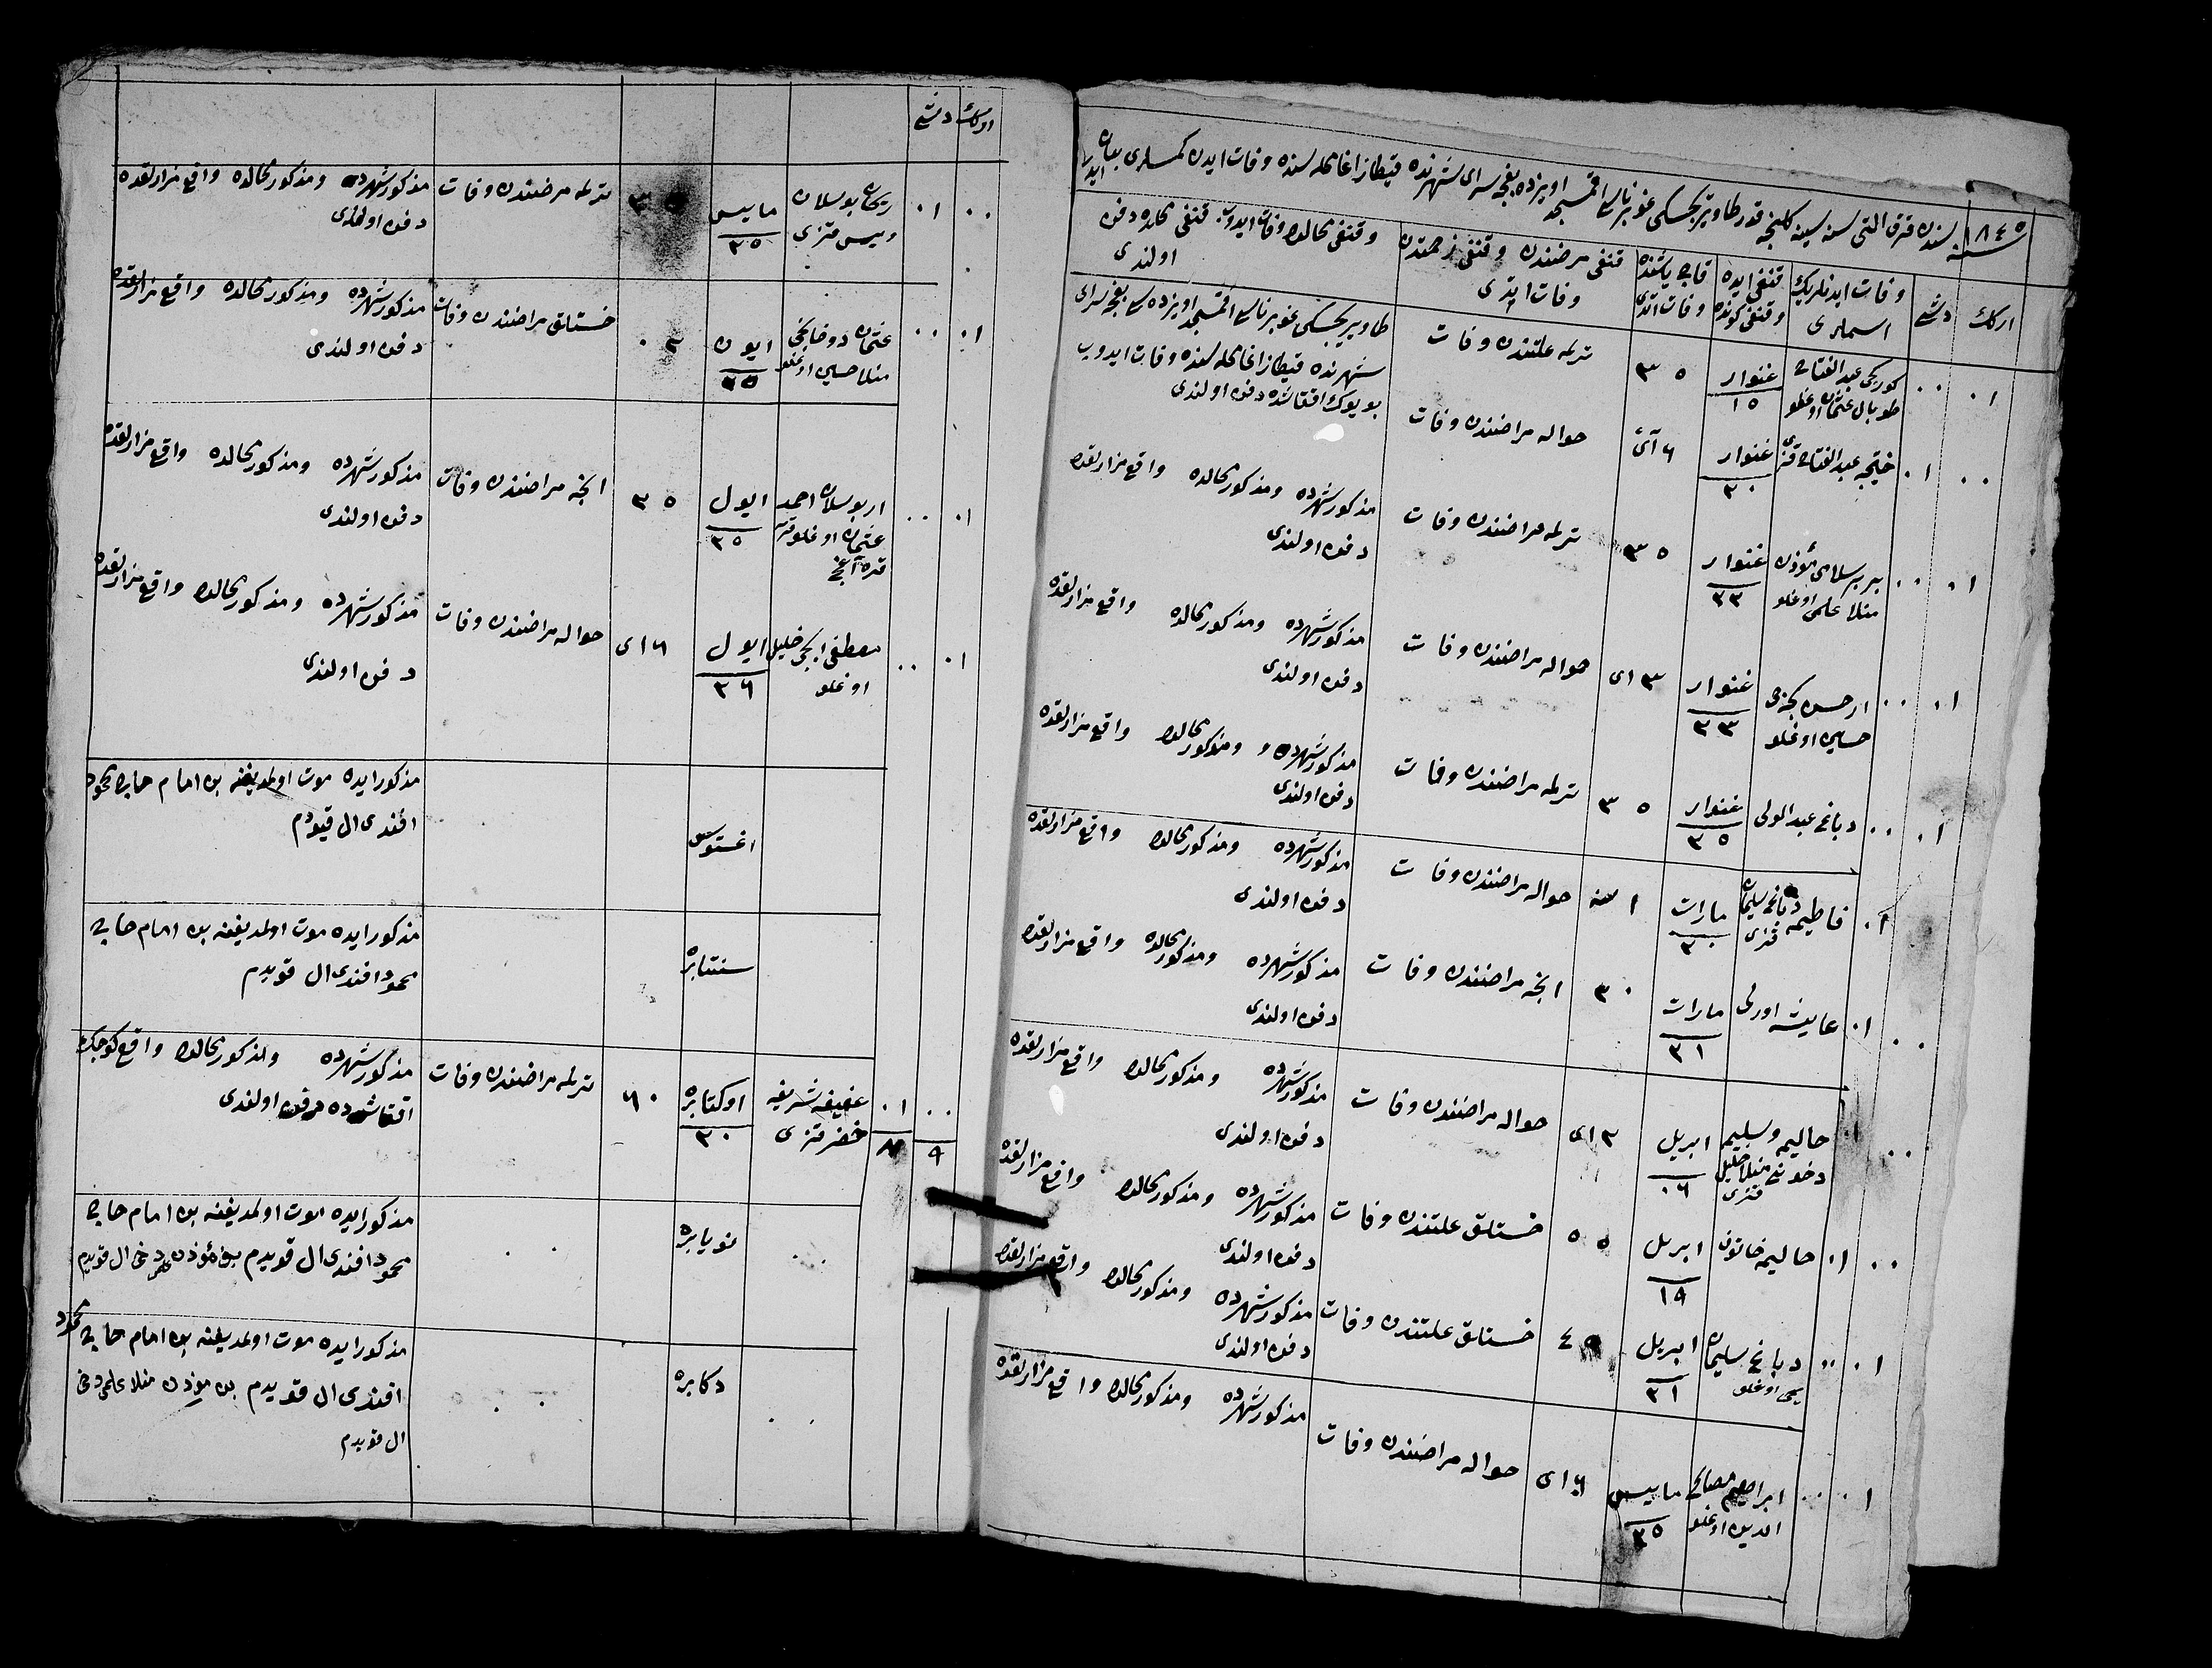 ١٨٤٥ سنه سندن قرق التی سنه سینه کلنجه قدر طاوریچسکی غوبرناسی اقمسجد اویزده بغچه سرای شهرنده قیطاز اغا محله سنده وفات ایدن کمسلری بیان ایدر
ارکك
دشی
وفات ایدنلریك اسملری
قنغی ایده وقنغی کونده
قاچ یاشنده وفات اتدی
قنغی مرضندن وقنغی زحمتدن وفات ایتدی
وقنغی محالده وفات ایدوب قنغی محلده دفن اولندی
٠١ ٠٠ کورکجی عبد الفتاح طوبال عثمان اوغلو
غنوار ١٥
٣٥
ترلمه علتندن وفات
طاوریچسکی غوبرناسی اقمسجد اویزده سی بغچه سرای
شهرنده قیطاز اغا محله سنده وفات ایدوب
بویوك اقتاشده دفن اولندی
٠٠ ٠١ خدیجه عبد الفتاح قزی
غنوار ٢٠
٦ آی
حواله مراضندن وفات
مذکور شهرده ومذکور محالده واقع مزارلقده
دفن اولندی
٠١ ٠٠ بربر سلامی مؤذن منلا علمی اوغلو
غنوار ٢٣
٣٥
ترلمه مراضندن وفات
مذکور شهرده ومذکور محالده واقع مزارلقده
دفن اولندی
٠١ ٠٠ ارحسن حسین اوغلو
غنوار ٢٣
٣ ای
حواله مراضندن وفات
مذکور شهرده ومذکور محالده واقع مزارلقده
دفن اولندی
٠١ ٠٠ دباغ عبد الولی
غنوار ٢٥
٣٥
ترلمه مراضندن وفات
مذکور شهرده ومذکور محالده واقع مزارلقده
دفن اولندی
٠١ فاطمه دباغ سلیمان قزی
مارات ٢٠
١ سنه
حواله مراضندن وفات
مذکور شهرده ومذکور محالده واقع مزارلقده
دفن اولندی
٠٠ ٠١ عایشه
مارات ٢١
٣٠
انجه مراضندن وفات
مذکور شهرده ومذکور محالده واقع مزارلقده
دفن اولندی
٠٠ حالیمه وسلیمه منلا خلیل قزی
ابریل ٠٦
٣ ای
حواله مراضندن وفات
مذکور شهرده ومذکور محالده واقع مزارلقده
دفن اولندی
٠٠ ٠١ حالیمه خاتون
ابریل ١٩
٥٥
خستلق علتندن وفات
مذکور شهرده ومذکور محالده واقع مزارلقده
دفن اولندی
٠١ ٠٠ دباغ سلیمان اوغلو
ابریل ٢١
خستلق علتندن وفات
مذکور شهرده ومذکور محالده واقع مزارلقده
٠١ ٠٠ ابراهیم اوغلو
مایس ٢٥
٦ ای
حواله مراضندن وفات
ارکك دشی
٠٠ ٠١
مایس ٢٥
ترلمه مرضندن وفات
مذکور شهرده ومذکور محالده واقع مزارلقده
دفن اولندی
٠١ ٠٠ عثمان منلا حسین اوغلو
ایون
خستلق مراضندن وفات
مذکور شهرده ومذکور محالده واقع مزارلقده
دفن اولندی
٠١ ٠٠ اربوسلان احمد عثمان اوغلو
ایول ٢٥
٣٥
انجه مراضندن وفات
مذکور شهرده ومذکور محالده واقع مزارلقده
دفن اولندی
٠١ ٠٠ مصطفی خلیل اوغلو
ایول ٢٦
٦ ای
حواله مراضندن وفات
مذکور شهرده ومذکور محالده واقع مزارلقده
دفن اولندی
اغستوس
مذکور ایده موت اولمدیغنه بن امام حاجی محمود
افندی ال قیودم
سنتابره
مذکور ایده موت اولمدیغنه بن امام حاجی
محمود افندی ال قویدم
٠٠ ٠١ عفیفه شریفه خضر قزی
اوکتابره ٢٠
٦٠
ترلمه مراضندن وفات
مذکور شهرده ومذکور محالده واقع کوچك
اقتاشده دفن اولندی
نویابره
مذکور ایده موت اولمدیغنه بن امام حاجی
محمود افندی ال قویدم بن مؤذن دخی ال قویدم
دکابره
مذکور ایده موت اولمدیغنه بن امام حاجی محمود
افندی ال قویدم بن مؤذن منلا علمی دخی
ال قویدم